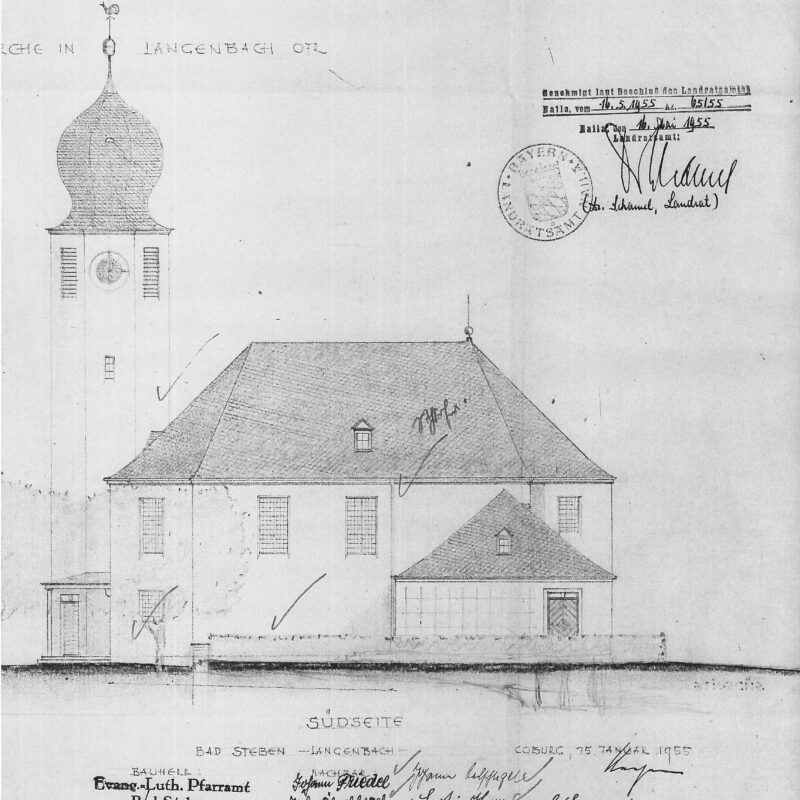 RCHE IN LANGENBACH OFR
Genehmigt laut Beschluß des Landratsamtes
Naila, vom 16.5.1955 Az. 65/55
Naila, den 16. Mai 1955
Landratsamt:
(Dr. Schamel, Landrat)
BAYERN
LANDRATSAMT
SÜDSEITE
BAD STEBEN — LANGENBACH — COBURG, 15. JANUAR 1955
BAUHERR NACHBAR
Evang.-Luth. Pfarramt Johann Friedel Johann